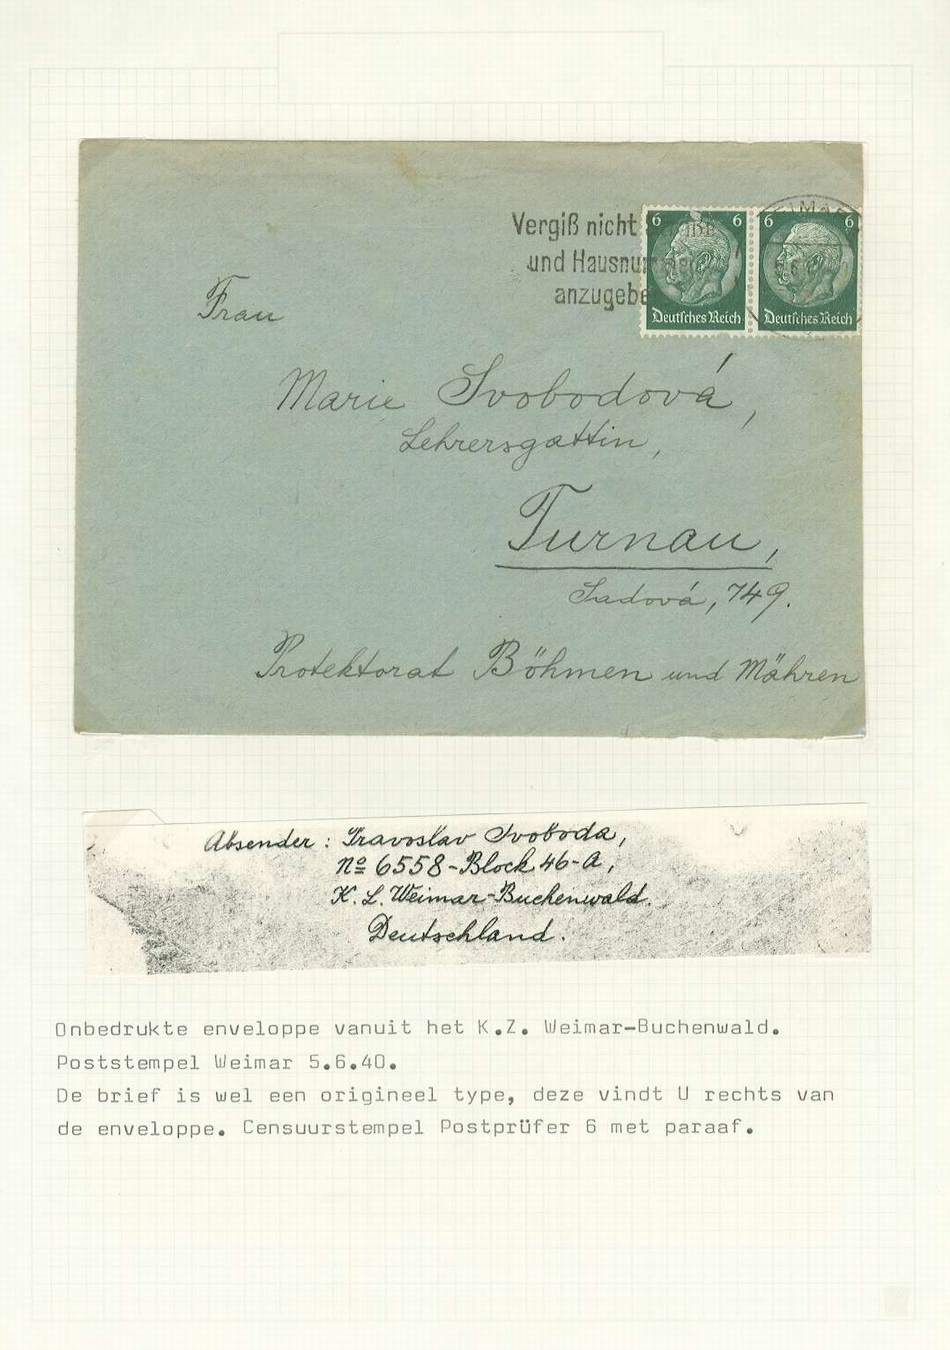 Vergiß nicht
und Hausnum
anzugebe
6 6 6 6
Deutsches Reich Deutsches Reich
Frau
Marie Svobodová,
Lehrersgattin,
Turnau,
Sadová, 749.
Protektorat Böhmen und Mähren
Absender: Svoboda,
No 6558-Block 46-A,
K. L. Weimar-Buchenwald.
Deutschland.
Onbedrukte enveloppe vanuit het K.Z. Weimar-Buchenwald.
Poststempel Weimar 5.6.40.
De brief is wel een origineel type, deze vindt U rechts van
de enveloppe. Censuurstempel Postprüfer 6 met paraaf.